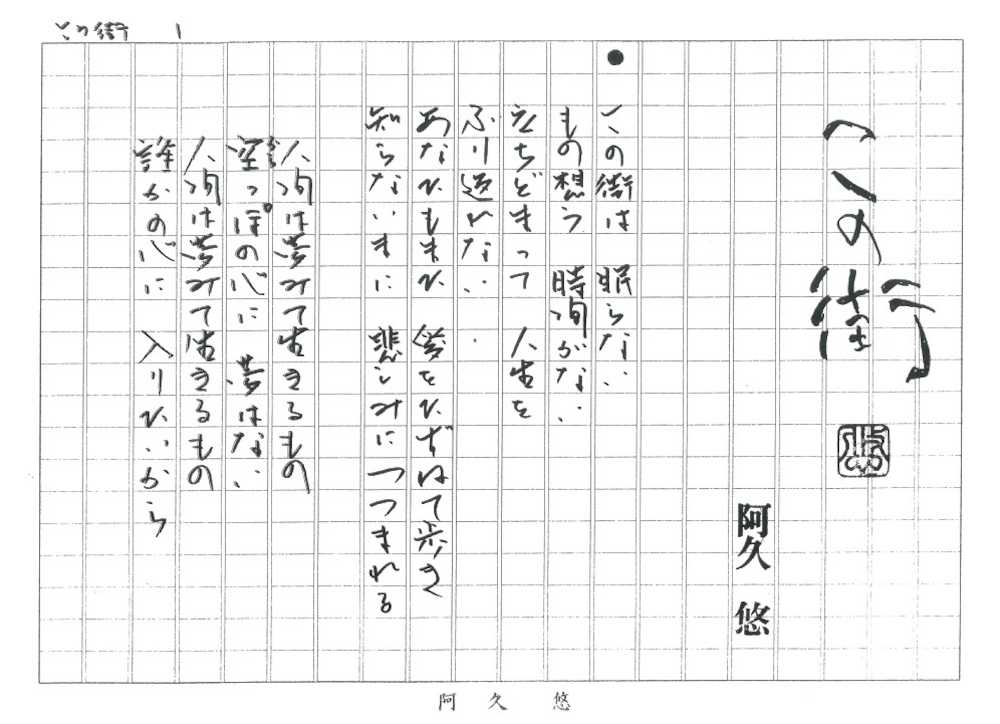 この街 1
この街
阿久 悠
この街は 眠らない
もの想う 時間がない
立ちどまって 人生を
ふり返れない
あなたもまた 愛をたずねて歩き
知らないまに 悲しみにつつまれる
人間は夢みて生きるもの
空っぽの心に 夢はない
人間は夢みて生きるもの
誰かの心に 入りたいから
阿久 悠